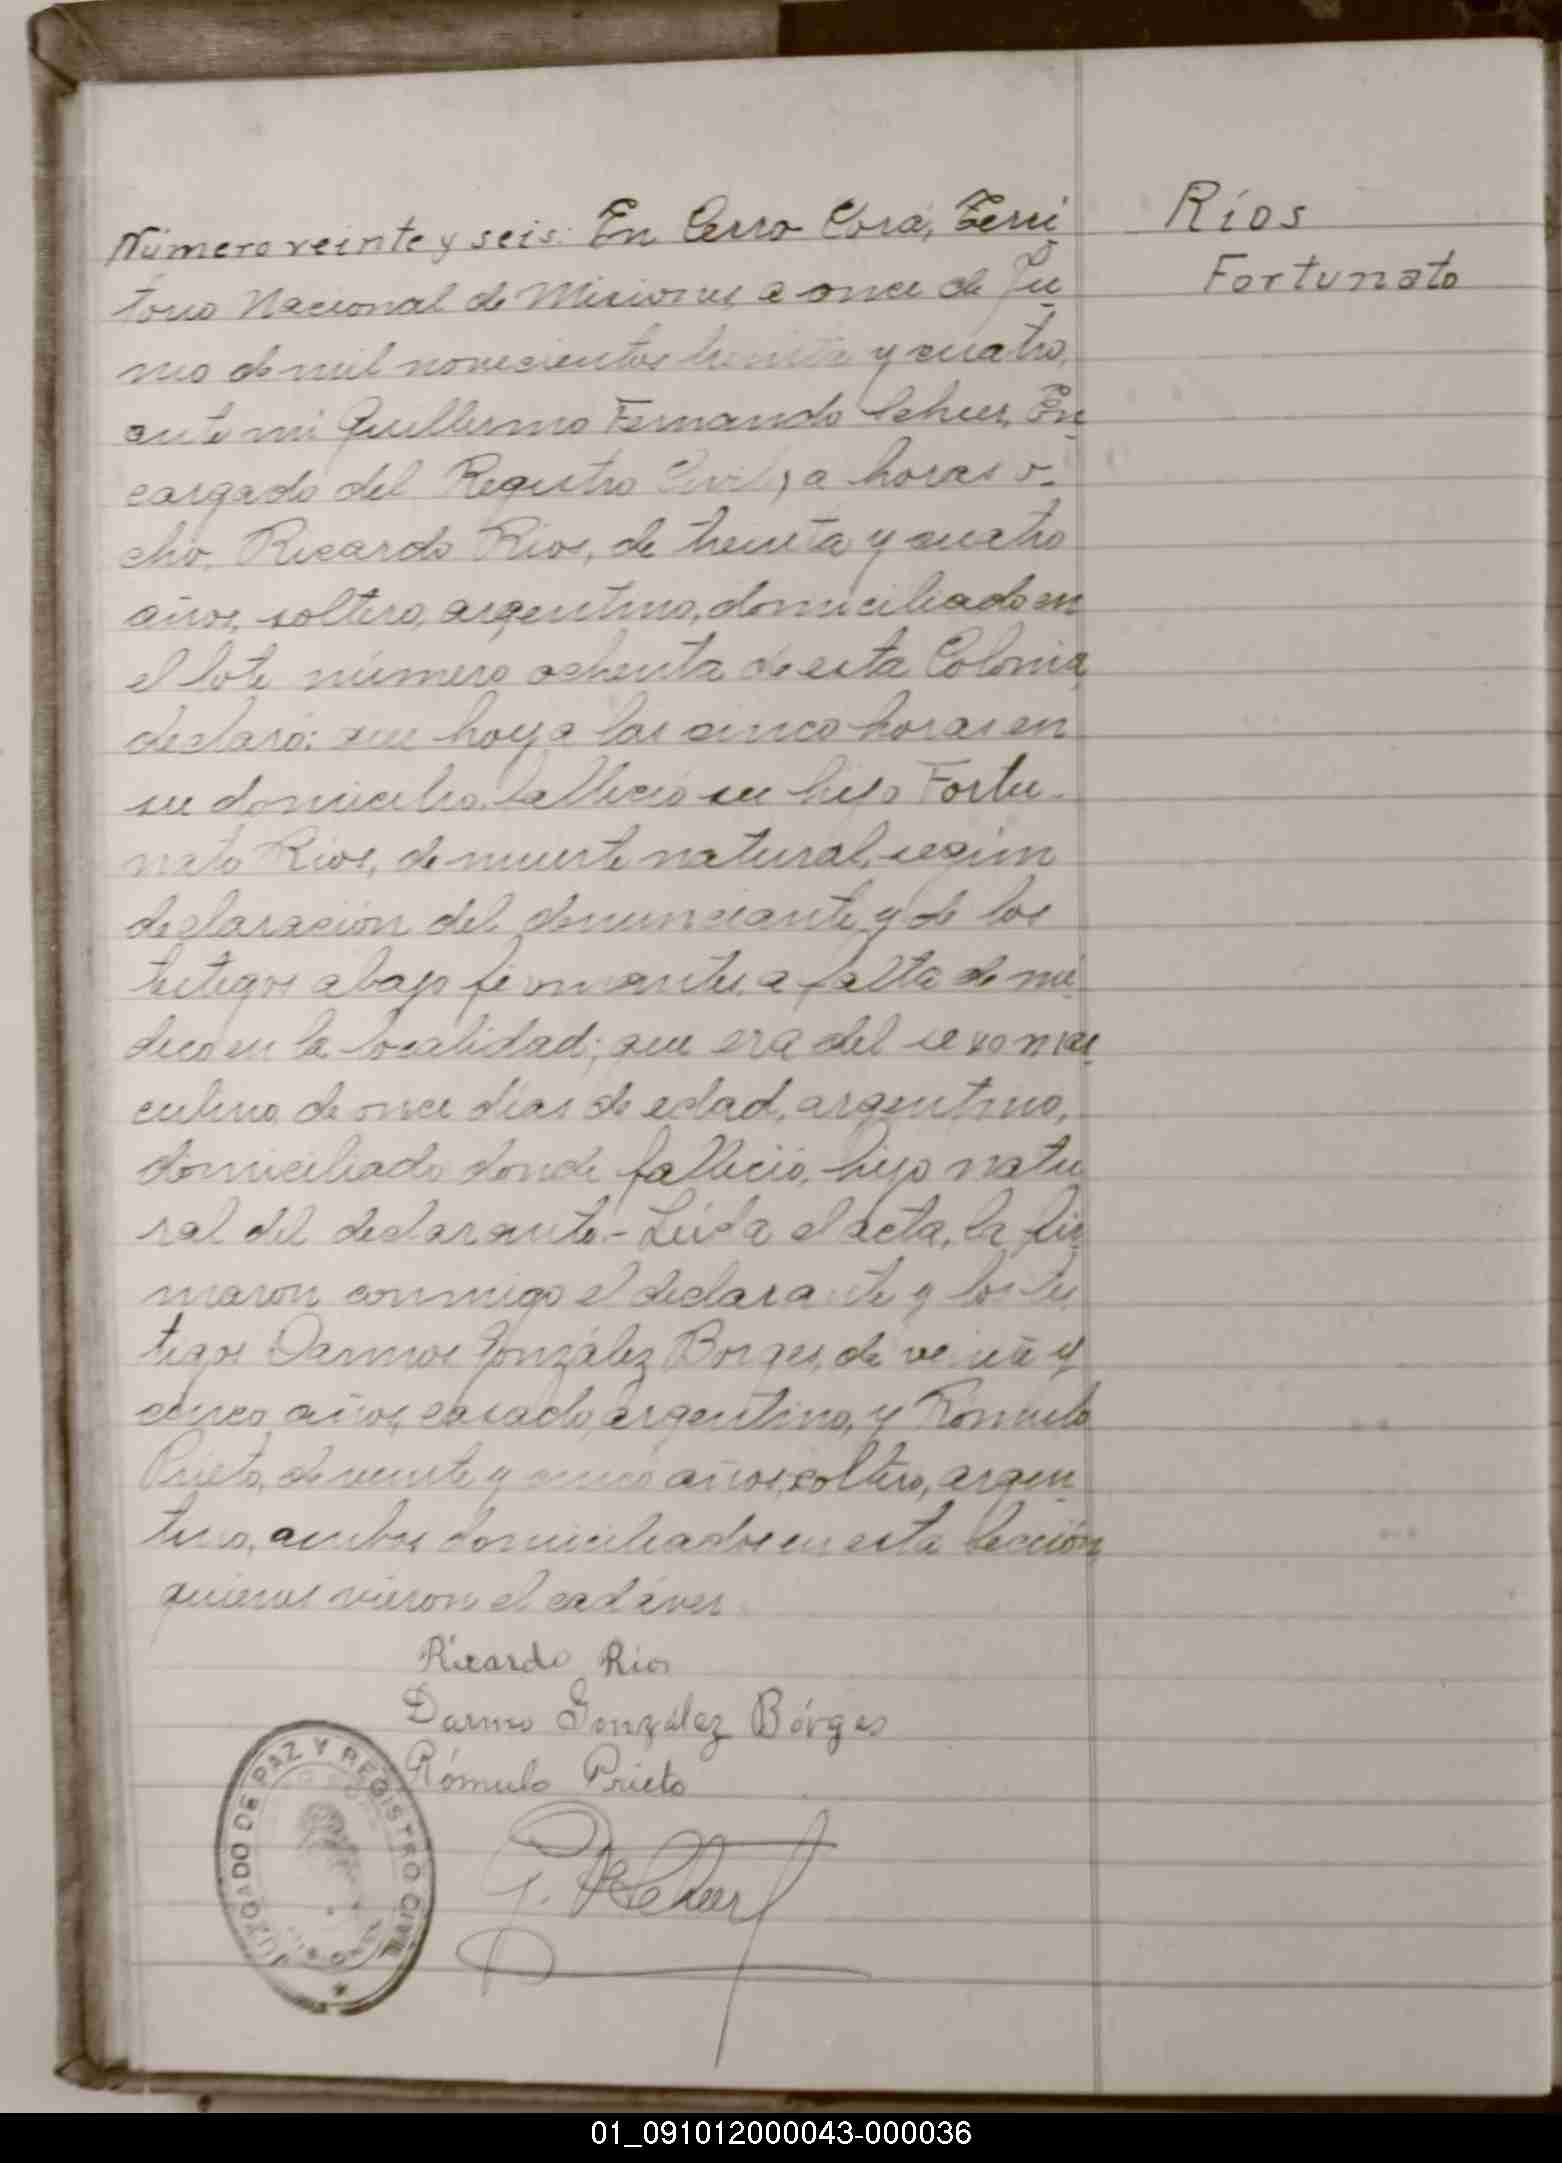 Número veinte y seis. En Cerro Corá, Terri
torio Nacional de Misiones, a once de Ju
nio de mil novecientos treinta y cuatro,
ante mi Guillermo Fernando Scheer, En
cargado del Registro Civil, a horas o-
cho, Ricardo Rios, de treinta y cuatro
años, soltero, argentino, domiciliado en
el lote número ochenta de esta Colonia,
declaró: que hoy a las cinco horas en
su domicilio falleció su hijo Fortu-
nato Rios, de muerte natural, según
declaración del denunciante y de los
testigos abajo firmantes, a falta de mé-
dico en la localidad; que era del sexo mas
culino, de once días de edad, argentino,
domiciliado donde falleció, hijo natu
ral del declarante.- Leída el acta, la fir
maron conmigo el declarante y los tes
tigos Darmos González Borges, de veinte y
cinco años, casado, argentino, y Rómulo
Prieto, de veinte y cinco años, soltero, argen
tino, ambos domiciliados en esta Sección
quienes vieron el cadáver.
Ríos
Fortunato
Ricardo Rios
Darmo González Bórges
Rómulo Prieto
JUZGADO DE PAZ Y REGISTRO CIVIL
01_091012000043-000036